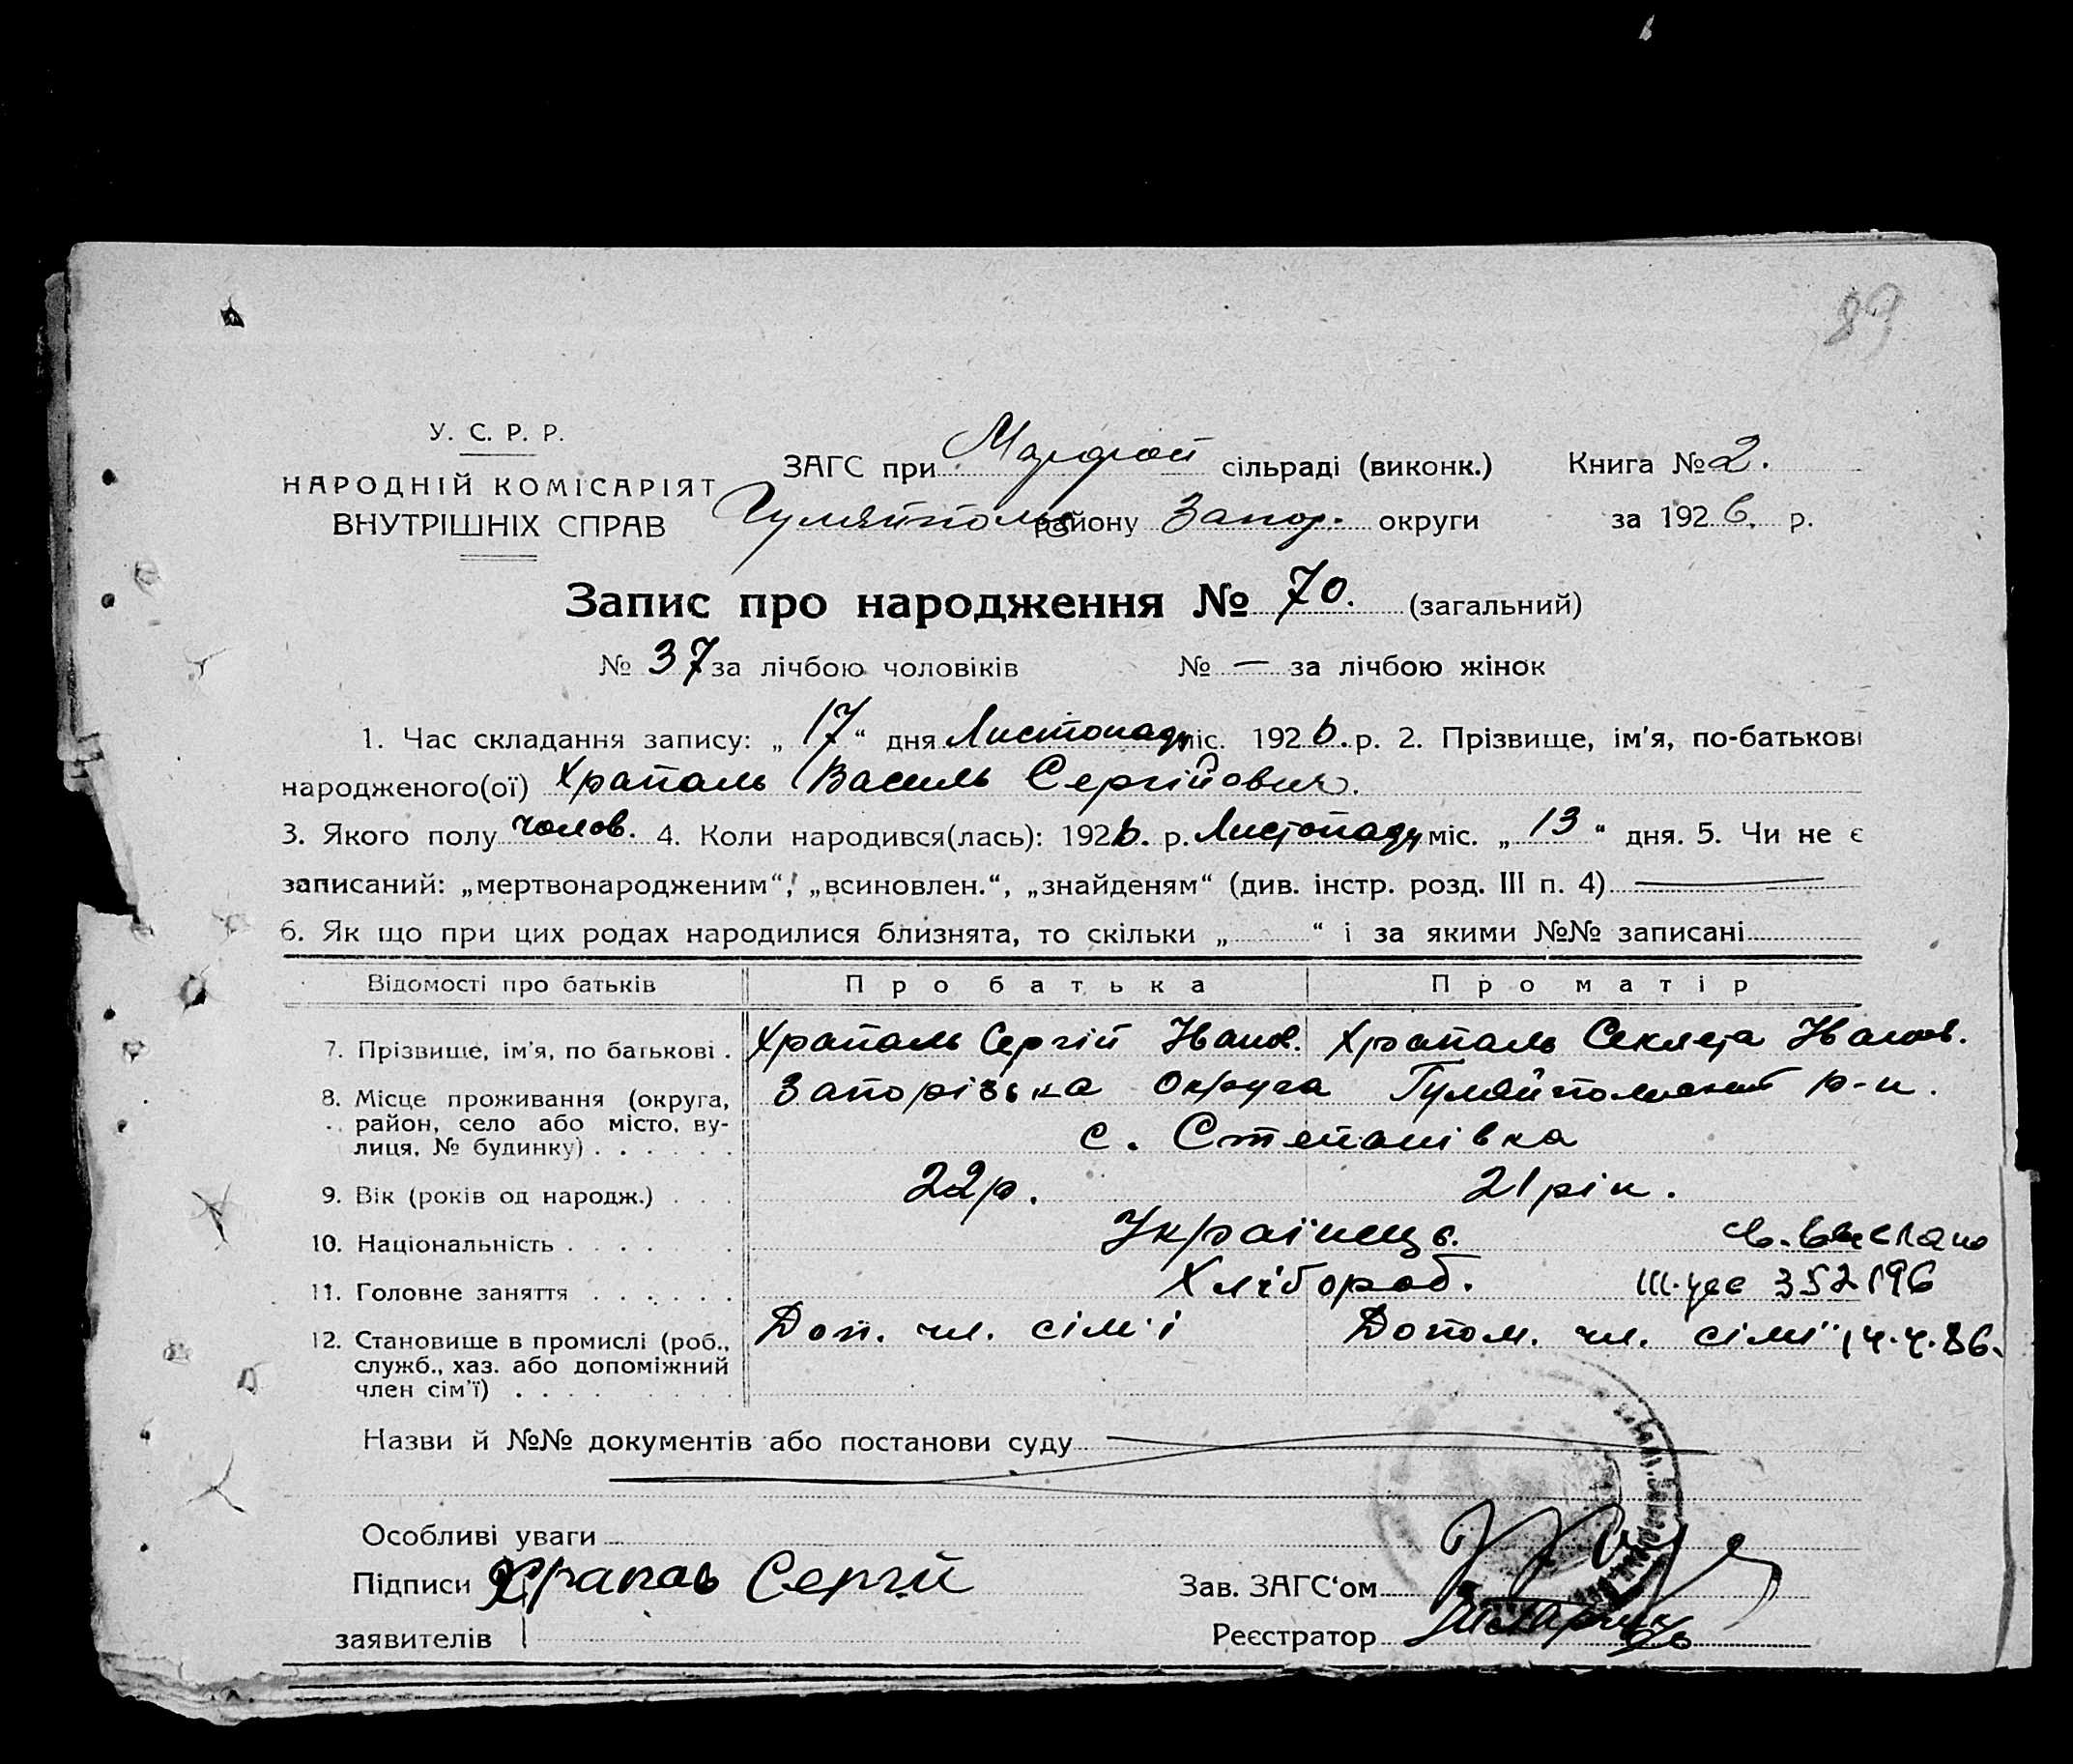 89
У. С. Р. Р.
НАРОДНІЙ КОМІСАРІЯТ
ВНУТРІШНІХ СПРАВ
ЗАГС при Марфой сільраді (виконк.) Книга № 2.
Гуляйполь району Запор. округи за 1926. р.
Запис про народження № 70. (загальний)
№ 37 за лічбою чоловіків № — за лічбою жінок
1. Час складання запису: „ 17 “ дня Листопаду міс. 1926. р. 2. Прізвище, ім'я, по-батькові
народженого(ої) Храпаль Василь Сергійович.
3. Якого полу чолов. 4. Коли народився(лась): 1926. р. Листопаду міс. „ 13 “ дня. 5. Чи не є
записаний: „мертвонародженим“, „всиновлен.“, „знайденям“ (див. інстр. розд. III п. 4) —
6. Як що при цих родах народилися близнята, то скільки „ “ і за якими №№ записані
Відомості про батьків Про батька Про матір
7. Прізвище, ім'я, по батькові . Храпаль Сергій Іванов. Храпаль Секлета Іванов.
8. Місце проживання (округа, Запорізька округа Гуляйпольский р-н.
район, село або місто, ву-
лиця, № будинку) . . . . . . с. Степанівка
9. Вік (років од народж.) . . . 22 р. 21 рік.
10. Національність . . . . . . Українець. св. выслано
11. Головне заняття . . . . . . Хлібороб. III-ЖС 352196
12. Становище в промислі (роб., Доп. чл. сім'ї Допом. чл. сімї 14.4.86.
служб., хаз. або допоміжний
член сім'ї) . . . .
Назви й №№ документів або постанови суду
Особливі уваги
Підписи Храпаль Сергій Зав. ЗАГС'ом
заявителів Реєстратор